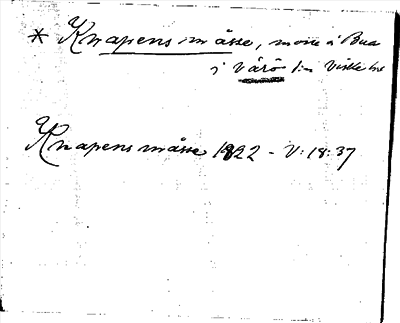 * Knapens måsse, mosse i Bua
i Värö sn Viske hd
Knapens måsse 1822 - V: 18: 37